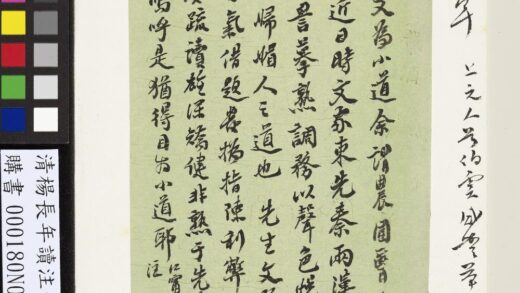 上元人
文為小道余謂農圃醫
近日時文家東先秦兩漢
書摹熟調務以聲色悅
婦媚人之道也 先生文
氣借題發揮指陳利弊
疏讀雄深矯健非熟于先
嗚呼是猶得目為小道耶 江甯汪
清楊長年讀注
購書 000180N0